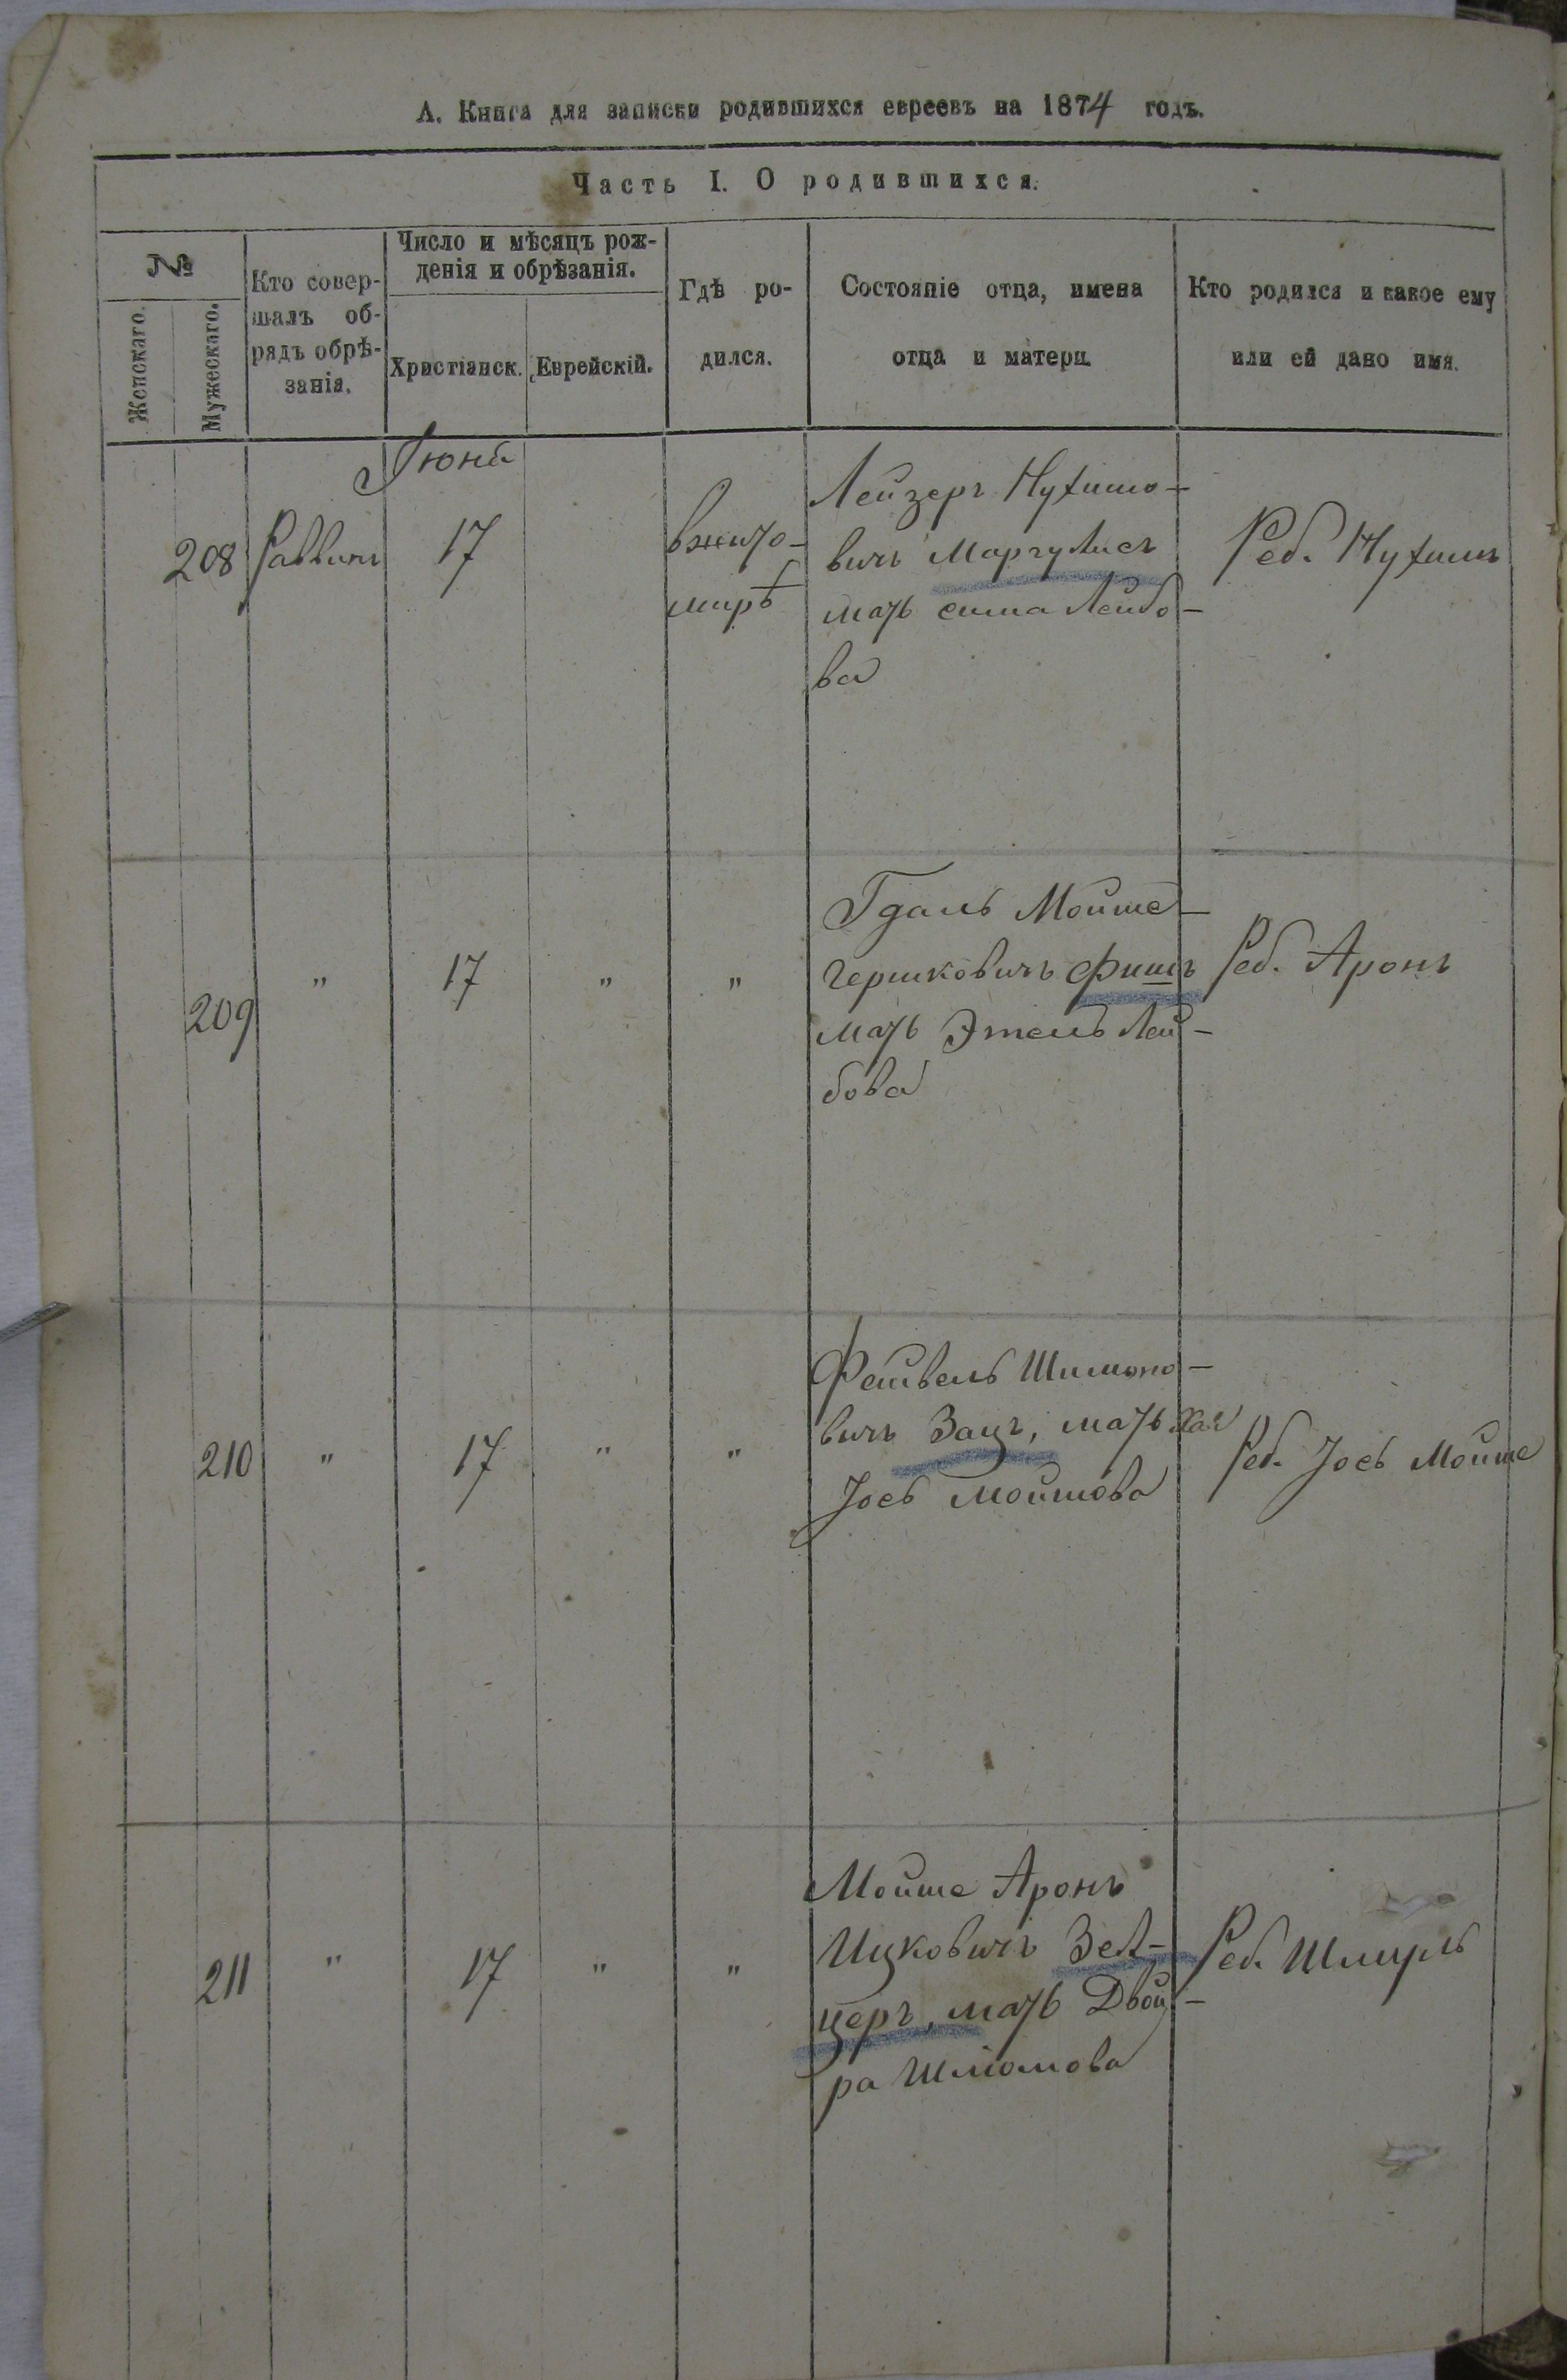 А. Книга для записки родившихся евреевъ на 1874 годъ.
Часть I. О родившихся.
№
Женскаго.
Мужескаго.
Кто совер-
шалъ об-
рядъ обрѣ-
занія.
Число и мѣсяцъ рож-
денія и обрѣзанія.
Христіанск.
Еврейскій.
Гдѣ ро-
дился.
Состояніе отца, имена
отца и матери.
Кто родился и какое ему
или ей дано имя.
Іюня
208
Раввинъ
17
вжито-
мирѣ
Лейзеръ Нухимо-
вичъ Маргулисъ
мать сима Лейбо-
ва
Реб. Нухимъ
209
"
17
"
"
Гдаль Мойше-
Гершковичъ Фишъ
мать Этель Лей-
бова
Реб. Аронъ
210
"
17
"
"
Фейвель Шимоно-
вичъ Зацъ, мать Хая
Јось мойшова
Реб. Јось Мойше
211
"
17
"
"
Мойше Аронъ
Ицковичъ Зел-
церъ, мать Двой-
ра Шліомова
Реб. Шмуль